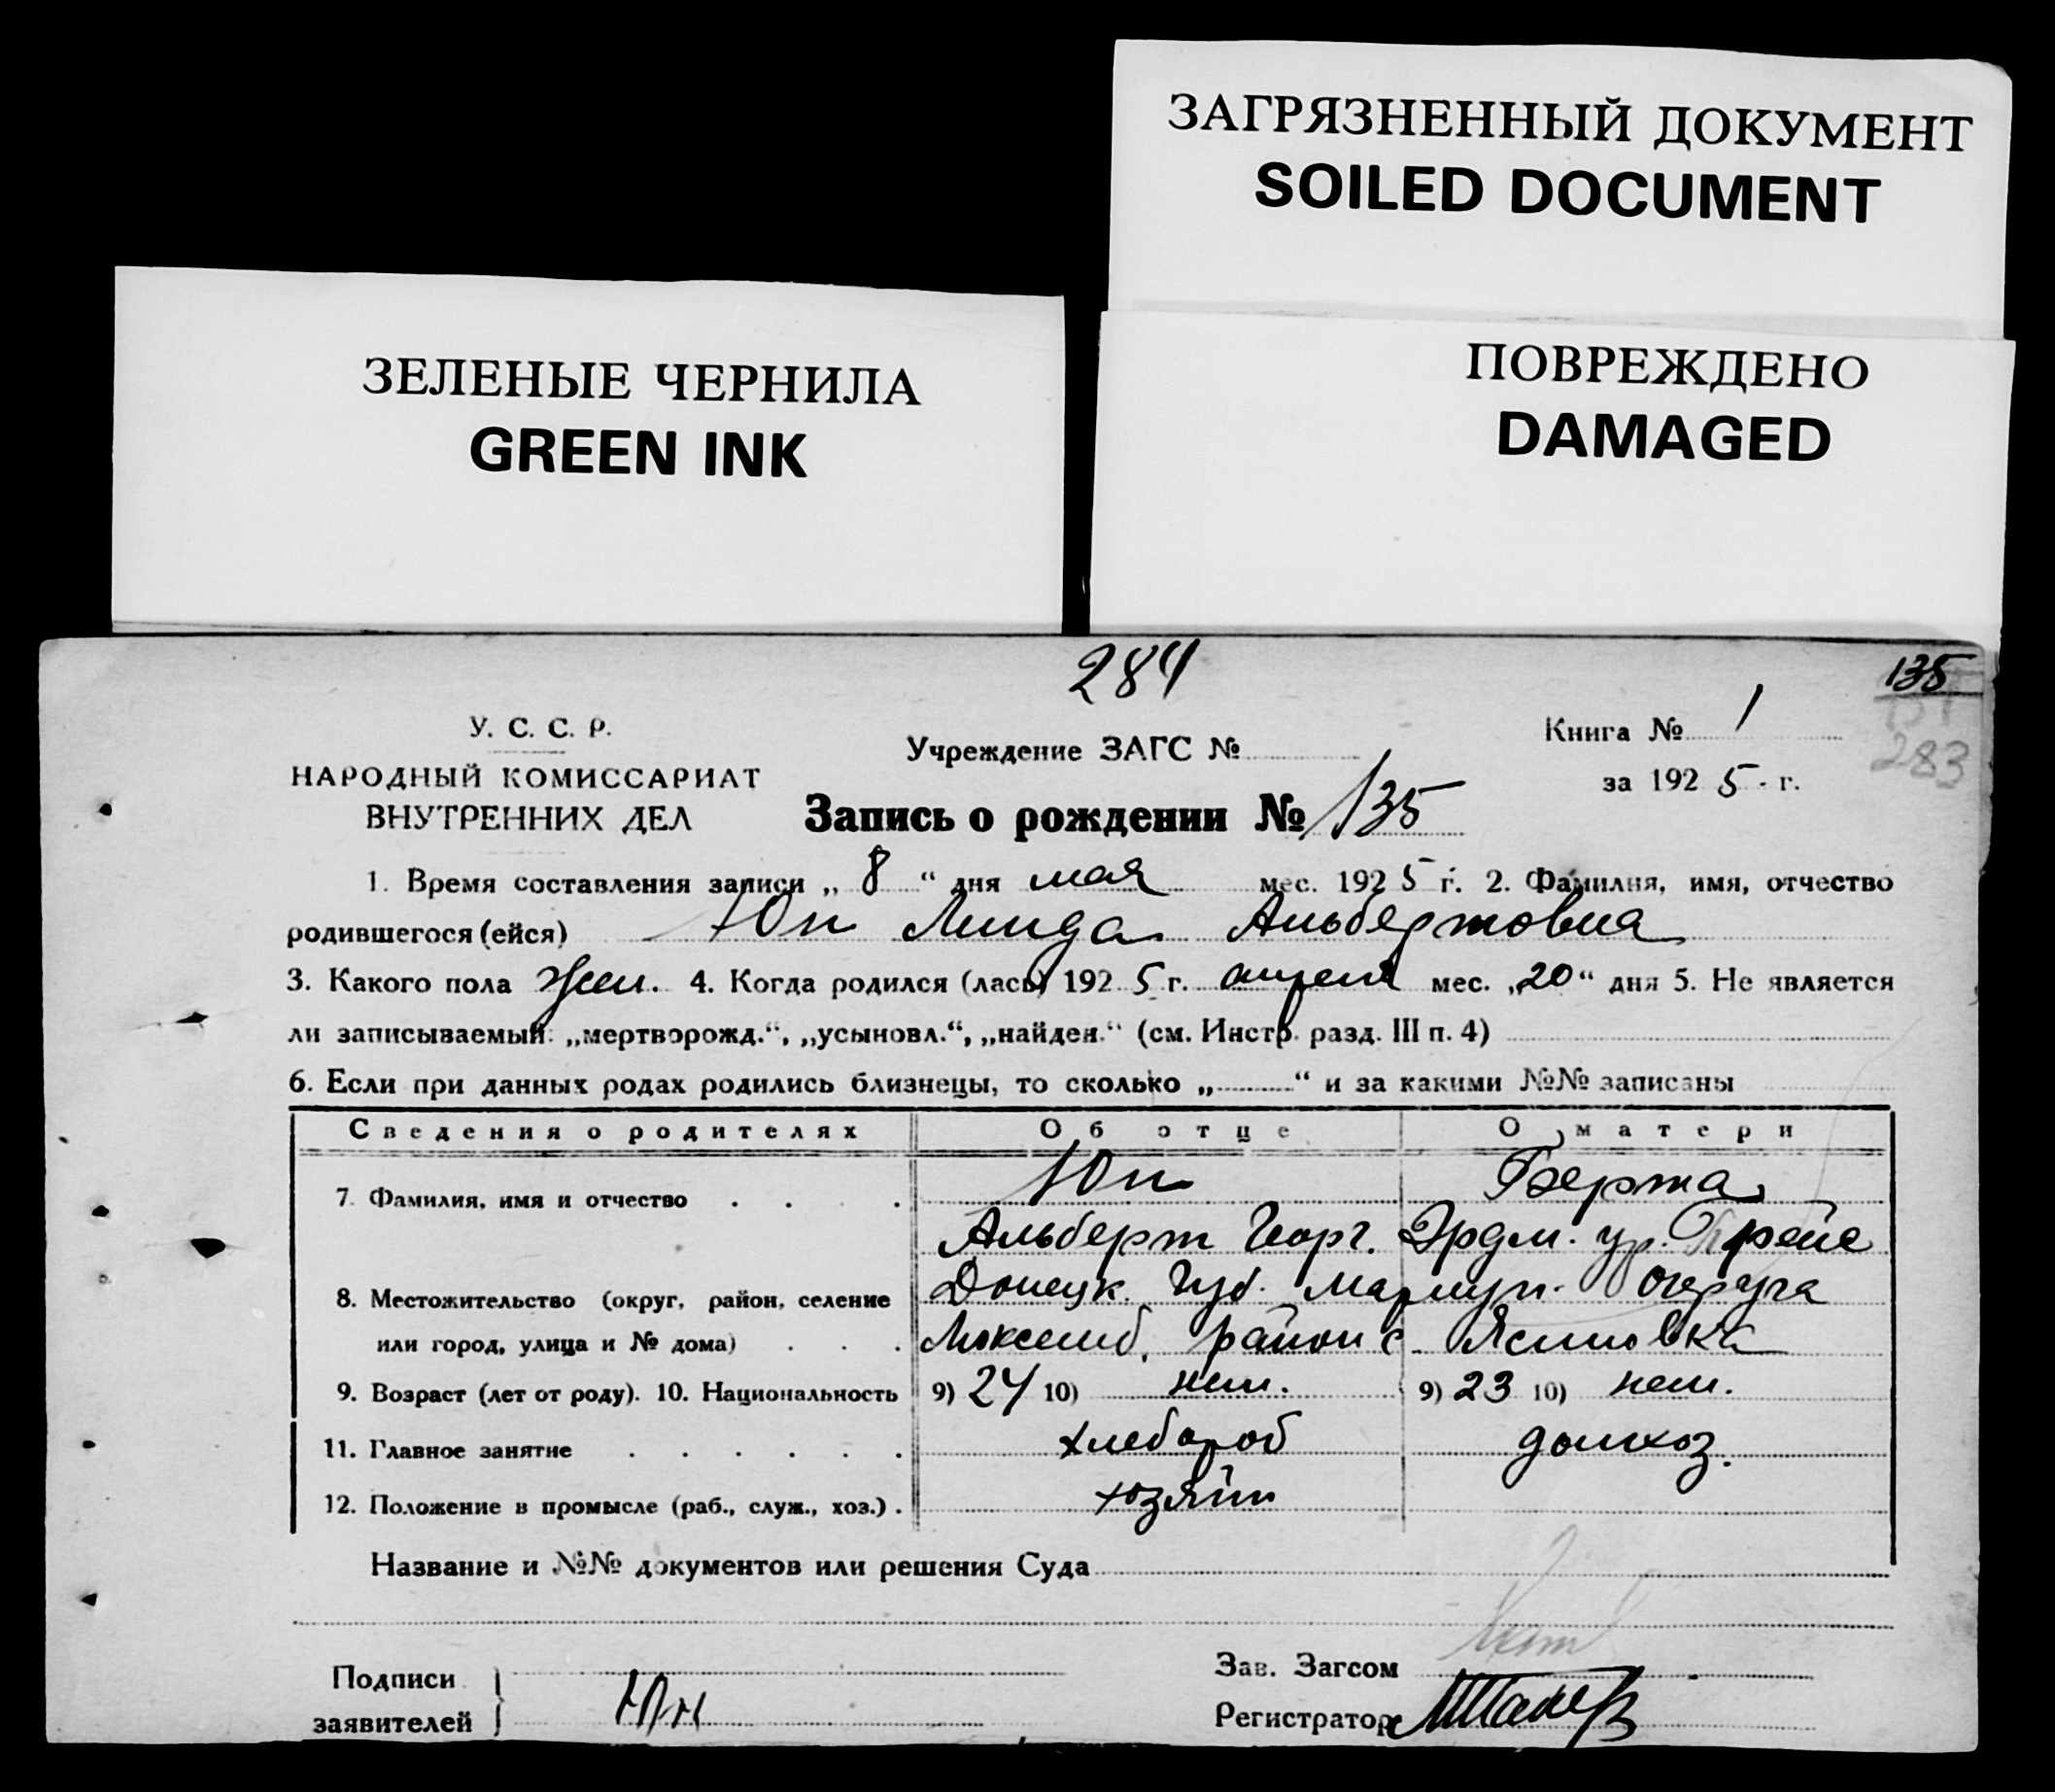 ЗАГРЯЗНЕННЫЙ ДОКУМЕНТ
SOILED DOCUMENT
ЗЕЛЕНЫЕ ЧЕРНИЛА
GREEN INK
ПОВРЕЖДЕНО
DAMAGED
284
135
283
У. С. С. Р.
НАРОДНЫЙ КОМИССАРИАТ
ВНУТРЕННИХ ДЕЛ
Учреждение ЗАГС №
Запись о рождении № 135
Книга № 1
за 1925 г.
1. Время составления записи „ 8 “ дня мая мес. 1925 г. 2. Фамилия, имя, отчество
родившегося (ейся) Юн Линда Альбертовна
3. Какого пола жен. 4. Когда родился (лась) 1925 г. апреля мес. „20“ дня 5. Не является
ли записываемый: „мертворожд.“, „усыновл.“, „найден.“ (см. Инстр. разд. III п. 4)
6. Если при данных родах родились близнецы, то сколько „ “ и за какими №№ записаны
Сведения о родителях Об отце О матери
7. Фамилия, имя и отчество . . . . Юн Берта
Альберт Георг. Эрдм. ур. Крейс
8. Местожительство (округ, район, селение Донецк. Губ. Мариуп. Округа
или город, улица и № дома) . . . район с. Ясиновка
9. Возраст (лет от роду). 10. Национальность 9) 24 10) нем. 9) 23 10) нем.
11. Главное занятие . . . . . . хлебороб домхоз.
12. Положение в промысле (раб., служ., хоз.) . хозяин
Название и №№ документов или решения Суда
Подписи
заявителей Юн
Зав. Загсом
Регистратор